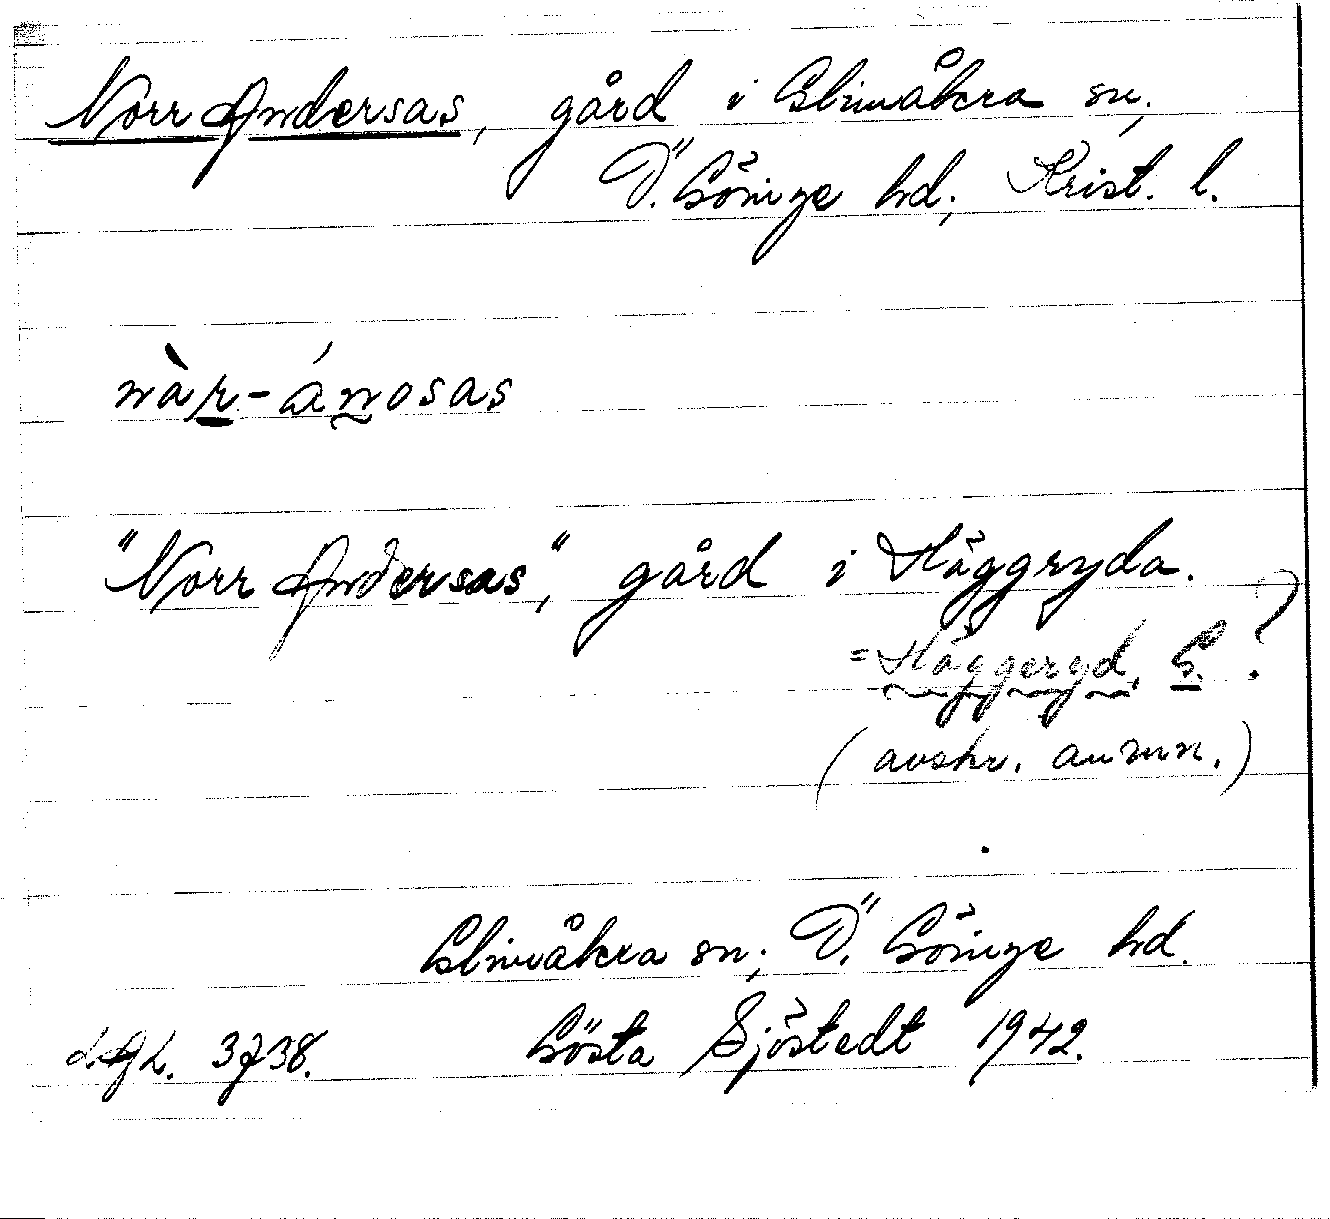 Norr Andersas, gård i Glimåkra sn,
Ö. Göinge hd, Krist. l.
nàr-ánosas
"Norr Andersas", gård i Häggryda.
= Häggeryd, G. ?
(avskr. anmn.)
Glimåkra sn, Ö. Göinge hd.
LAL. 3738. Gösta Sjöstedt 1942.